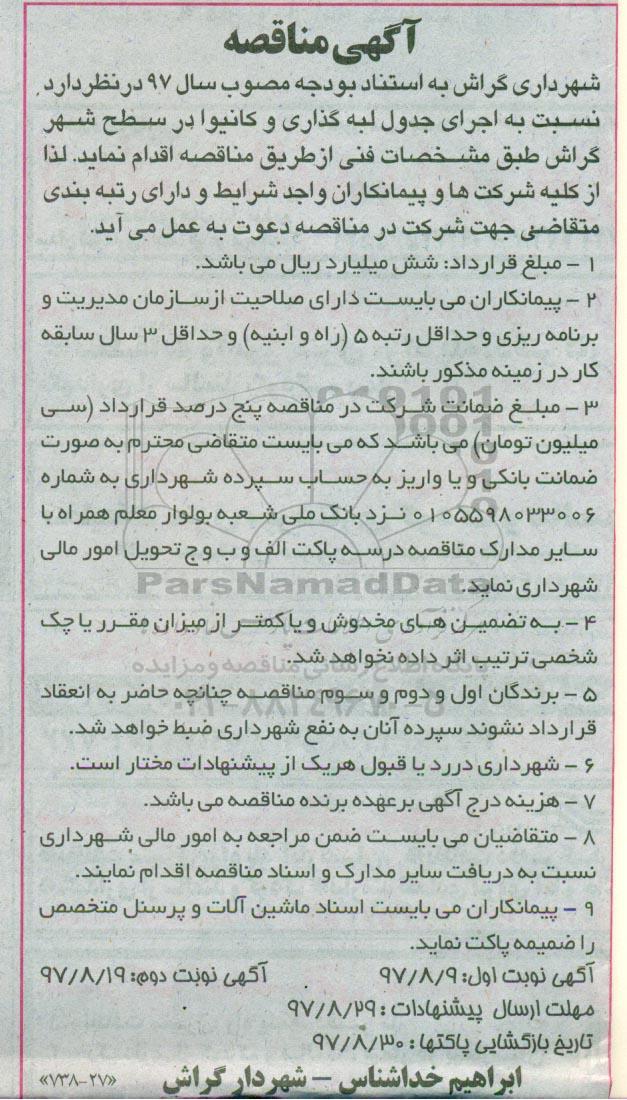 آگهی مناقصه
شهرداری گراش به استناد بودجه مصوب سال ۹۷ درنظردارد
نسبت به اجرای جدول لبه گذاری و کانیوا در سطح شهر
گراش طبق مشخصات فنی ازطریق مناقصه اقدام نماید. لذا
از کلیه شرکت ها و پیمانکاران واجد شرایط و دارای رتبه بندی
متقاضی جهت شرکت در مناقصه دعوت به عمل می آید.
۱ - مبلغ قرارداد: شش میلیارد ریال می باشد.
۲ - پیمانکاران می بایست دارای صلاحیت ازسازمان مدیریت و
برنامه ریزی و حداقل رتبه ۵ (راه و ابنیه) و حداقل ۳ سال سابقه
کار در زمینه مذکور باشند.
۳ - مبلغ ضمانت شرکت در مناقصه پنج درصد قرارداد (سی
میلیون تومان) می باشد که می بایست متقاضی محترم به صورت
ضمانت بانکی و یا واریز به حساب سپرده شهرداری به شماره
۰۱۰۵۵۹۸۰۳۳۰۰۶ نزد بانک ملی شعبه بولوار معلم همراه با
سایر مدارک مناقصه درسه پاکت الف و ب و ج تحویل امور مالی
شهرداری نماید.
ParsNamadData
۴ - به تضمین های مخدوش و یا کمتر از میزان مقرر یا چک
شخصی ترتیب اثر داده نخواهد شد.
پایگاه اطلاع رسانی مناقصه و مزایده
۵ - برندگان اول و دوم و سوم مناقصه چنانچه حاضر به انعقاد
قرارداد نشوند سپرده آنان به نفع شهرداری ضبط خواهد شد.
۶ - شهرداری دررد یا قبول هریک از پیشنهادات مختار است.
۷ - هزینه درج آگهی برعهده برنده مناقصه می باشد.
۸ - متقاضیان می بایست ضمن مراجعه به امور مالی شهرداری
نسبت به دریافت سایر مدارک و اسناد مناقصه اقدام نمایند.
۹ - پیمانکاران می بایست اسناد ماشین آلات و پرسنل متخصص
را ضمیمه پاکت نماید.
آگهی نوبت اول: ۹۷/۸/۹ آگهی نوبت دوم: ۹۷/۸/۱۹
مهلت ارسال پیشنهادات : ۹۷/۸/۲۹
تاریخ بازگشایی پاکتها : ۹۷/۸/۳۰
ابراهیم خداشناس - شهردار گراش «۷۳۸-۲۷»